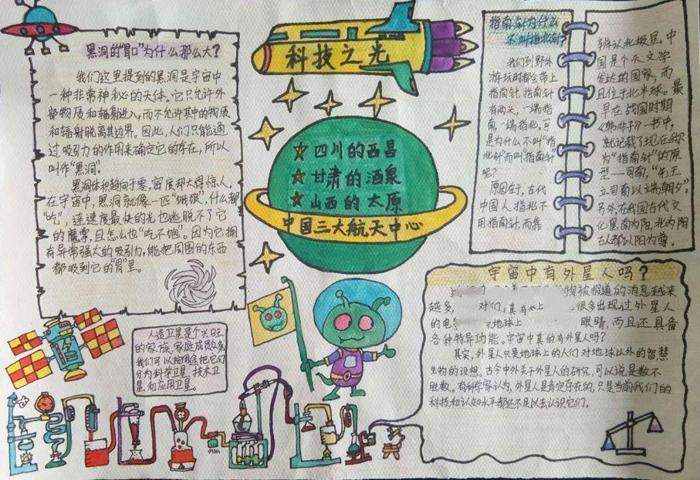 科技之光
黑洞的"胃口"为什么那么大?
我们这里提到的黑洞是宇宙中
一种非常神秘的天体。它只允许外
部物质和辐射进入,而不允许其中的物质
和辐射脱离其边界。因此,人们只能通
过吸引力的作用来确定它的存在,所以
叫作"黑洞"。
黑洞体积趋向于零,密度却大得惊人,
在宇宙中,黑洞就像一匹"饿狼",什么都
"吃",连速度最快的光也逃脱不了它
的魔掌,且怎么也"吃不饱"。因为它拥
有异常强大的吸引力,能把周围的东西
都吸到它的"胃"里。
四川的西昌
甘肃的酒泉
山西的太原
中国三大航天中心
指南针为什么
不叫指北针
我们到野外
游玩时都会带上
指南针。指南针
有两头,一端指
南,一端指北,可
是为什么不叫"指
北针"而叫"指南针"
呢?
原因在于,古代
中国人指北不
用指南针,而靠
辨认北极星。中
国是个天文学
发达的国家,而
且位于北半球。最
早在战国时期
《韩非子》一书中,
就记载了现在称
为"指南针"的原
型——司南,"先王
立司南以端朝夕"
另外在我国古代文
化里南为阳,北为阴
在人都认阳为尊。
宇宙中有外星人吗?
被报道的消息越来
越多,
对们
很多出现过外星人
的电
地球上
眼睛,而且还具备
各种特异功能。宇宙中真的有外星人吗?
其实,外星人只是地球上的人们对地球以外的智慧
生物的设想。古今中外关于外星人的研究,可以说是数不
胜数。有科学家认为,外星人是肯定存在的,只是当前我们的
科技和认知水平都还不足以去认识它们。
人造卫星是个兴旺
的家族,家庭成员众多
我们可以按用途把它们
分为科学卫星,技术卫
星,和应用卫星。